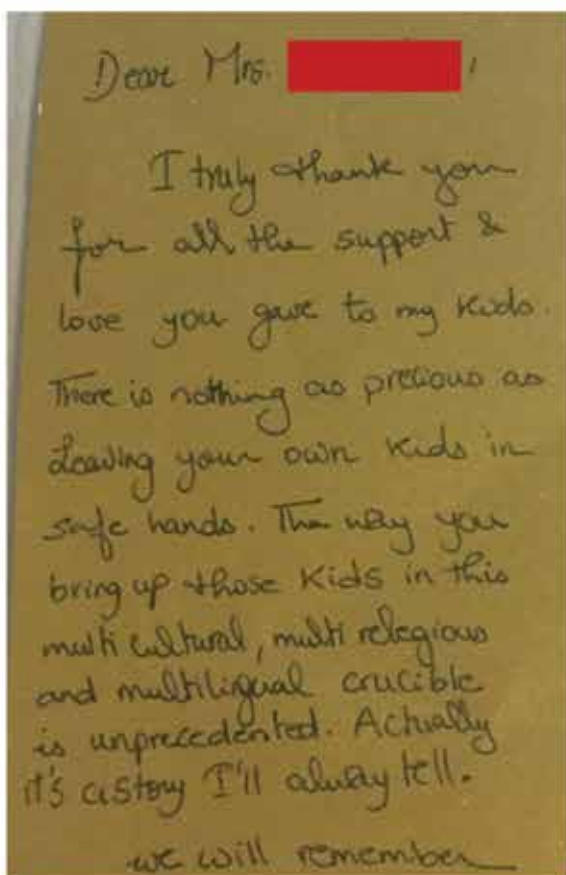 Dear Mrs. !
I truly thank you
for all the support &
love you gave to my kids.
There is nothing as precious as
Leaving your own kids in
safe hands. The way you
bring up those kids in this
multi cultural, multi relegious
and multiligual crucible
is unprecedented. Actually
it's a story I'll alway tell.
we will remember